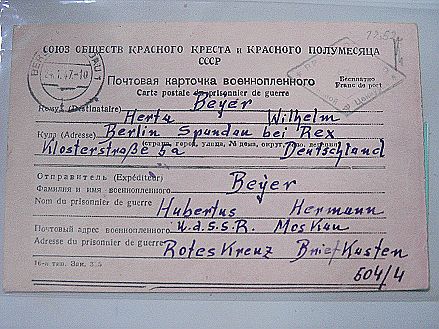 12.50
СОЮЗ ОБЩЕСТВ КРАСНОГО КРЕСТА и КРАСНОГО ПОЛУМЕСЯЦА
СССР
BER
24.1.47.-10
Почтовая карточка военнопленного
Бесплатно
Carte postale du prisonnier de guerre
Franc de port
Кому (Destinataire) Beyer
Herta Wilhelm
Куда (Adresse) Berlin Spandau bei Rex
(страна, город, улица, № дома, округ,
Klosterstraße 5a Deutschland
Отправитель (Expéditeur)
Фамилия и имя военнопленного Beyer
Nom du prisonnier de guerre
Hubertus Hermann
Почтовый адрес военнопленного U.d.S.S.R. Moskau
Adresse du prisonnier de guerre
Rotes Kreuz Briefkasten
16-я тип. Зак. 3
504/4